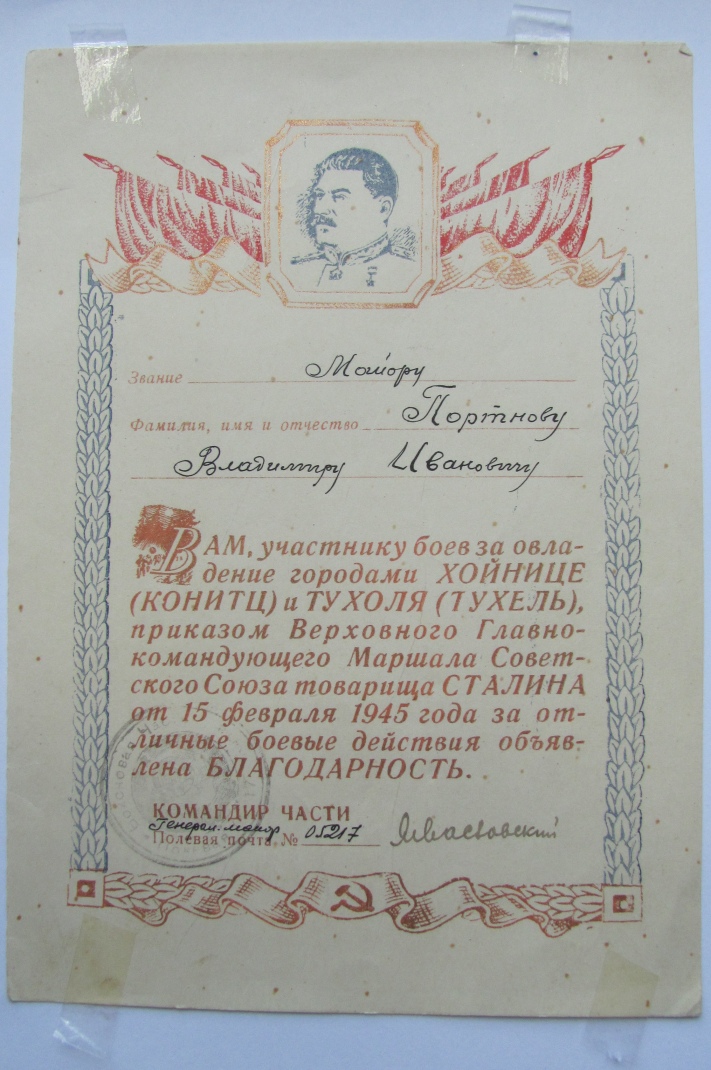 Звание Майору
Фамилия, имя и отчество Портнову
Владимиру Ивановичу
ВАМ, участнику боев за овла-
дение городами ХОЙНИЦЕ
(КОНИТЦ) и ТУХОЛЯ (ТУХЕЛЬ),
приказом Верховного Главно-
командующего Маршала Совет-
ского Союза товарища СТАЛИНА
от 15 февраля 1945 года за от-
личные боевые действия объяв-
лена БЛАГОДАРНОСТЬ.
КОМАНДИР ЧАСТИ
Генерал-майор
Полевая почта № 05217